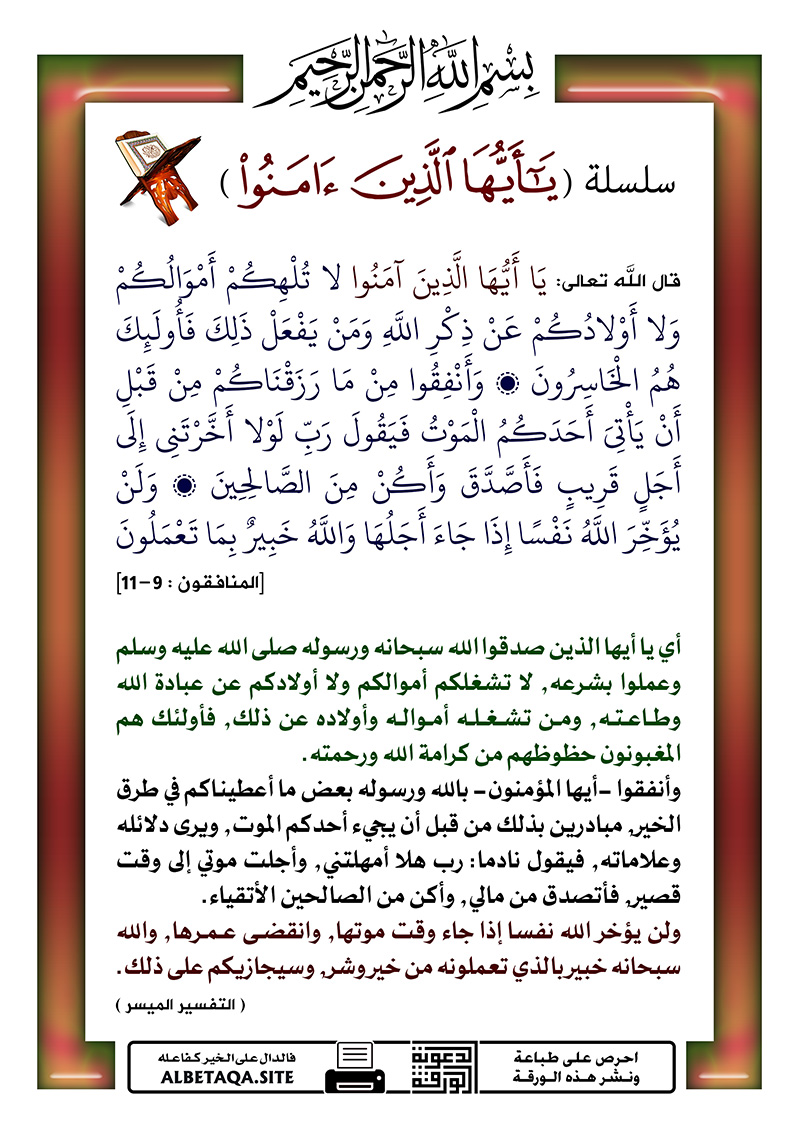 بِسْمِ اللَّهِ الرَّحْمَنِ الرَّحِيمِ
سلسلة (يَـٰٓأَيُّهَا ٱلَّذِينَ ءَامَنُواْ)
قال الله تعالى: يَا أَيُّهَا الَّذِينَ آمَنُوا لا تُلْهِكُمْ أَمْوَالُكُمْ
وَلا أَوْلادُكُمْ عَنْ ذِكْرِ اللَّهِ وَمَنْ يَفْعَلْ ذَلِكَ فَأُولَئِكَ
هُمُ الْخَاسِرُونَ ۞ وَأَنْفِقُوا مِنْ مَا رَزَقْنَاكُمْ مِنْ قَبْلِ
أَنْ يَأْتِيَ أَحَدَكُمُ الْمَوْتُ فَيَقُولَ رَبِّ لَوْلا أَخَّرْتَنِي إِلَى
أَجَلٍ قَرِيبٍ فَأَصَّدَّقَ وَأَكُنْ مِنَ الصَّالِحِينَ ۞ وَلَنْ
يُؤَخِّرَ اللَّهُ نَفْسًا إِذَا جَاءَ أَجَلُهَا وَاللَّهُ خَبِيرٌ بِمَا تَعْمَلُونَ
[المنافقون : 9-11]
أي يا أيها الذين صدقوا الله سبحانه ورسوله صلى الله عليه وسلم
وعملوا بشرعه, لا تشغلكم أموالكم ولا أولادكم عن عبادة الله
وطاعته, ومن تشغله أمواله وأولاده عن ذلك, فأولئك هم
المغبونون حظوظهم من كرامة الله ورحمته.
وأنفقوا -أيها المؤمنون- بالله ورسوله بعض ما أعطيناكم في طرق
الخير, مبادرين بذلك من قبل أن يجيء أحدكم الموت, ويرى دلائله
وعلاماته, فيقول نادما: رب هلا أمهلتني, وأجلت موتي إلى وقت
قصير, فأتصدق من مالي, وأكن من الصالحين الأتقياء.
ولن يؤخر الله نفسا إذا جاء وقت موتها, وانقضى عمرها, والله
سبحانه خبير بالذي تعملونه من خير وشر, وسيجازيكم على ذلك.
( التفسير الميسر )
احرص على طباعة
ونشر هذه الورقة
الورقة
الدعوية
فالدال على الخير كفاعله
ALBETAQA.SITE